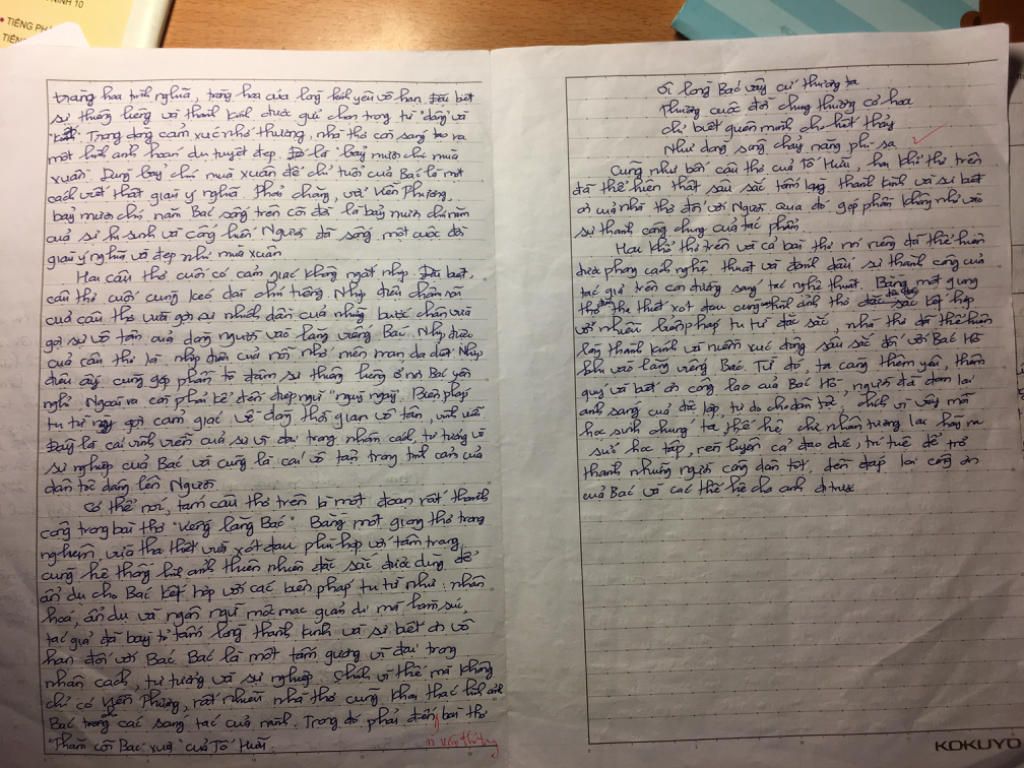 NINH 10
• TIẾNG PHÁ
TIẾNG
tràng hoa tình nghĩa, tràng hoa của lòng kính yêu vô hạn. Đặc biệt
sự thiêng liêng và thành kính được gửi gắm trong từ "dâng" và
Trong dòng cảm xúc nhớ thương, nhà thơ còn sáng tạo ra
một hình ảnh hoán dụ tuyệt đẹp. Đó là "bảy mươi chín mùa
xuân". Dùng bảy chín mùa xuân để chỉ tuổi của Bác là một
cách viết thật giàu ý nghĩa. Phải chăng, với Viễn Phương,
bảy mươi chín năm Bác sống trên cõi đời là bảy mươi chín năm
của sự hi sinh và cống hiến. Người đã sống một cuộc đời
giàu ý nghĩa và đẹp như mùa xuân
Hai câu thơ cuối có cảm giác không ngắt nhịp. Đặc biệt,
câu thơ cuối cùng kéo dài chín tiếng. Nhịp điệu chậm rãi
của câu thơ vừa gợi sự nhích dần của những bước chân vừa
gợi sự vô tận của dòng người vào lăng viếng Bác. Nhịp điệu
của câu thơ là nhịp điệu của nỗi nhớ miên man da diết. Nhịp
điệu ấy cũng góp phần tô đậm sự thiêng liêng ở nơi Bác yên
nghỉ. Ngoài ra còn phải kể đến điệp ngữ "ngày ngày". Biện pháp
tu từ này gợi cảm giác về dòng thời gian vô tận, vĩnh viễn
Đấy là cái vĩnh viễn của sự vĩ đại trong nhân cách, tư tưởng và
sự nghiệp của Bác và cũng là cái vô tận trong tình cảm của
dân tộc dâng lên Người
Có thể nói, tám câu thơ trên là một đoạn rất thành
công trong bài thơ "Viếng lăng Bác". Bằng một giọng thơ trang
nghiêm, vừa tha thiết vừa xót đau phù hợp với tâm trạng
cùng hệ thống hình ảnh thiên nhiên đặc sắc được dùng để
ẩn dụ cho Bác kết hợp với các biện pháp tu từ như: nhân
hoá, ẩn dụ và ngôn ngữ mộc mạc giản dị mà hàm súc,
tác giả đã bày tỏ tấm lòng thành kính và sự biết ơn vô
hạn đối với Bác. Bác là một tấm gương vĩ đại trong
nhân cách, tư tưởng và sự nghiệp. Chính vì thế mà không
chỉ có Viễn Phương, rất nhiều nhà thơ cũng khai thác hình ảnh
Bác trong các sáng tác của mình. Trong đó phải đến bài thơ
"Thăm cõi Bác xưa" của Tố Hữu.
Ôi lòng Bác vậy cứ thương ta
Thương cuộc đời chung thương cỏ hoa
Chỉ biết quên mình cho hết thảy
Như dòng sông chảy nặng phù sa
Cũng như bốn câu thơ của Tố Hữu, hai khổ thơ trên
đã thể hiện thật sâu sắc tấm lòng thành kính và sự biết
ơn của nhà thơ đối với Người qua đó góp phần không nhỏ vào
sự thành công chung của tác phẩm.
Hai khổ thơ trên và cả bài thơ nói riêng đã thể hiện
được phong cách nghệ thuật và đánh dấu sự thành công của
tác giả trên con đường sáng tác nghệ thuật. Bằng một giọng
thơ tha thiết xót đau cùng hình ảnh thơ đặc sắc kết hợp
với nhiều biện pháp tu từ đặc sắc, nhà thơ đã thể hiện
lòng thành kính và niềm xúc động sâu sắc đối với Bác Hồ
khi vào lăng viếng Bác. Từ đó, ta càng thêm yêu, thêm
quý và biết ơn công lao của Bác Hồ, người đã đem lại
ánh sáng của độc lập, tự do cho dân tộc. Chính vì vậy mà
học sinh chúng ta, thế hệ chủ nhân tương lai hãy ra
sức học tập, rèn luyện cả đạo đức, trí tuệ để trở
thành những người công dân tốt, đền đáp lại công ơn
của Bác và các thế hệ cha anh đi trước
KOKUYO